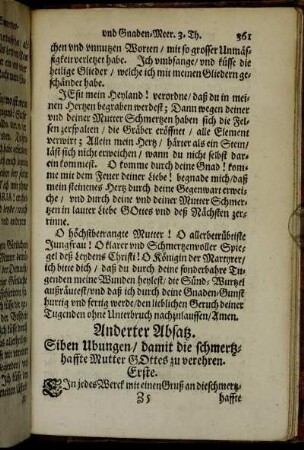 vnd Gnaden-Meer. 3. Th. 361
chen vnd vnnutzen Worten / mit so grosser Unmäs-
sigkeit verletzet habe. Ich vmbfange / vnd küsse die
heilige Glieder / welche ich mit meinen Gliedern ge-
schändet habe.
JEsu mein Heyland! verordne / daß du in mei-
nen Hertzen begraben werdest; Dann wegen deiner
vnd deiner Mutter Schmertzen haben sich die Fel-
sen zerspalten / die Gräber eröffnet / alle Element
verwirt; Allein mein Hertz / härter als ein Stein /
läst sich nicht erweichen / wann du nicht selbst dar-
ein kommest. O komme durch deine Gnad! kom-
me mit dem Feuer deiner Liebe! begnade mich / daß
mein steinenes Hertz durch deine Gegenwart erwei-
che / vnd durch deine vnd deiner Mutter Schmer-
tzen in lauter Liebe GOttes vnd deß Nächsten zer-
rinne.
O höchstbetrangte Mutter! O allerbetrübteste
Jungfrau! O klarer vnd Schmertzenvoller Spie-
gel deß Leydens Christi! O Königin der Martyrer /
ich bitte dich / daß du durch deine sonderbahre Tu-
genden meine Wunden heylest / die Sünd-Wurtzel
außräutest / vnd daß ich durch deine Gnaden-Gunst
hurtig vnd fertig werde / den lieblichen Geruch deiner
Tugenden ohne Unterbruch nachzulauffen / Amen.
Anderter Absatz.
Siben Ubungen / damit die schmertz-
haffte Mutter GOttes zu verehren.
Erste.
EIn jedes Werck mit einen Gruß an die schmertz-
Z 5 haffte